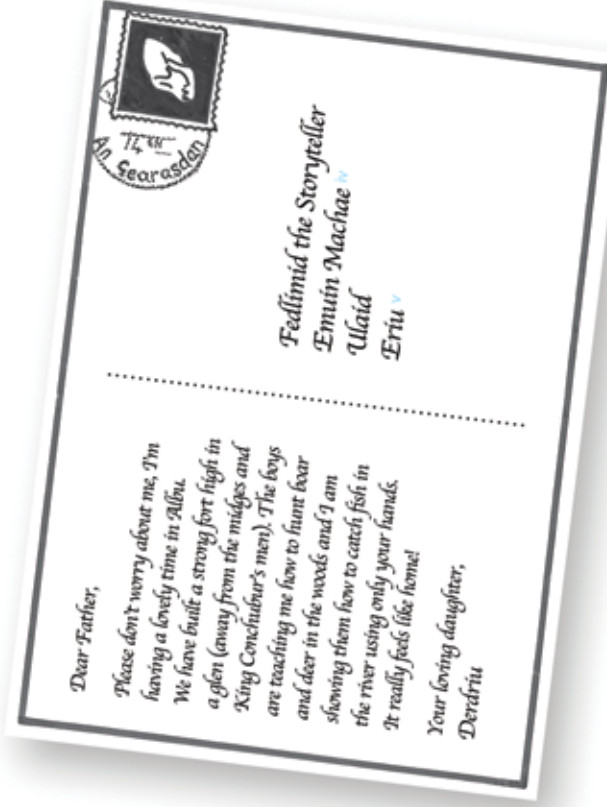 Dear Father,
Please don't worry about me, I'm
having a lovely time in Albu.
We have built a strong fort high in
a glen (away from the midges and
King Conchubur's men). The boys
are teaching me how to hunt boar
and deer in the woods and I am
showing them how to catch fish in
the river using only your hands.
It really feels like home!
Your loving daughter,
Derdriu
An Gearasdan
Fedlimid the Storyteller
Emuin Machae iv
Ulaid
Eriu v